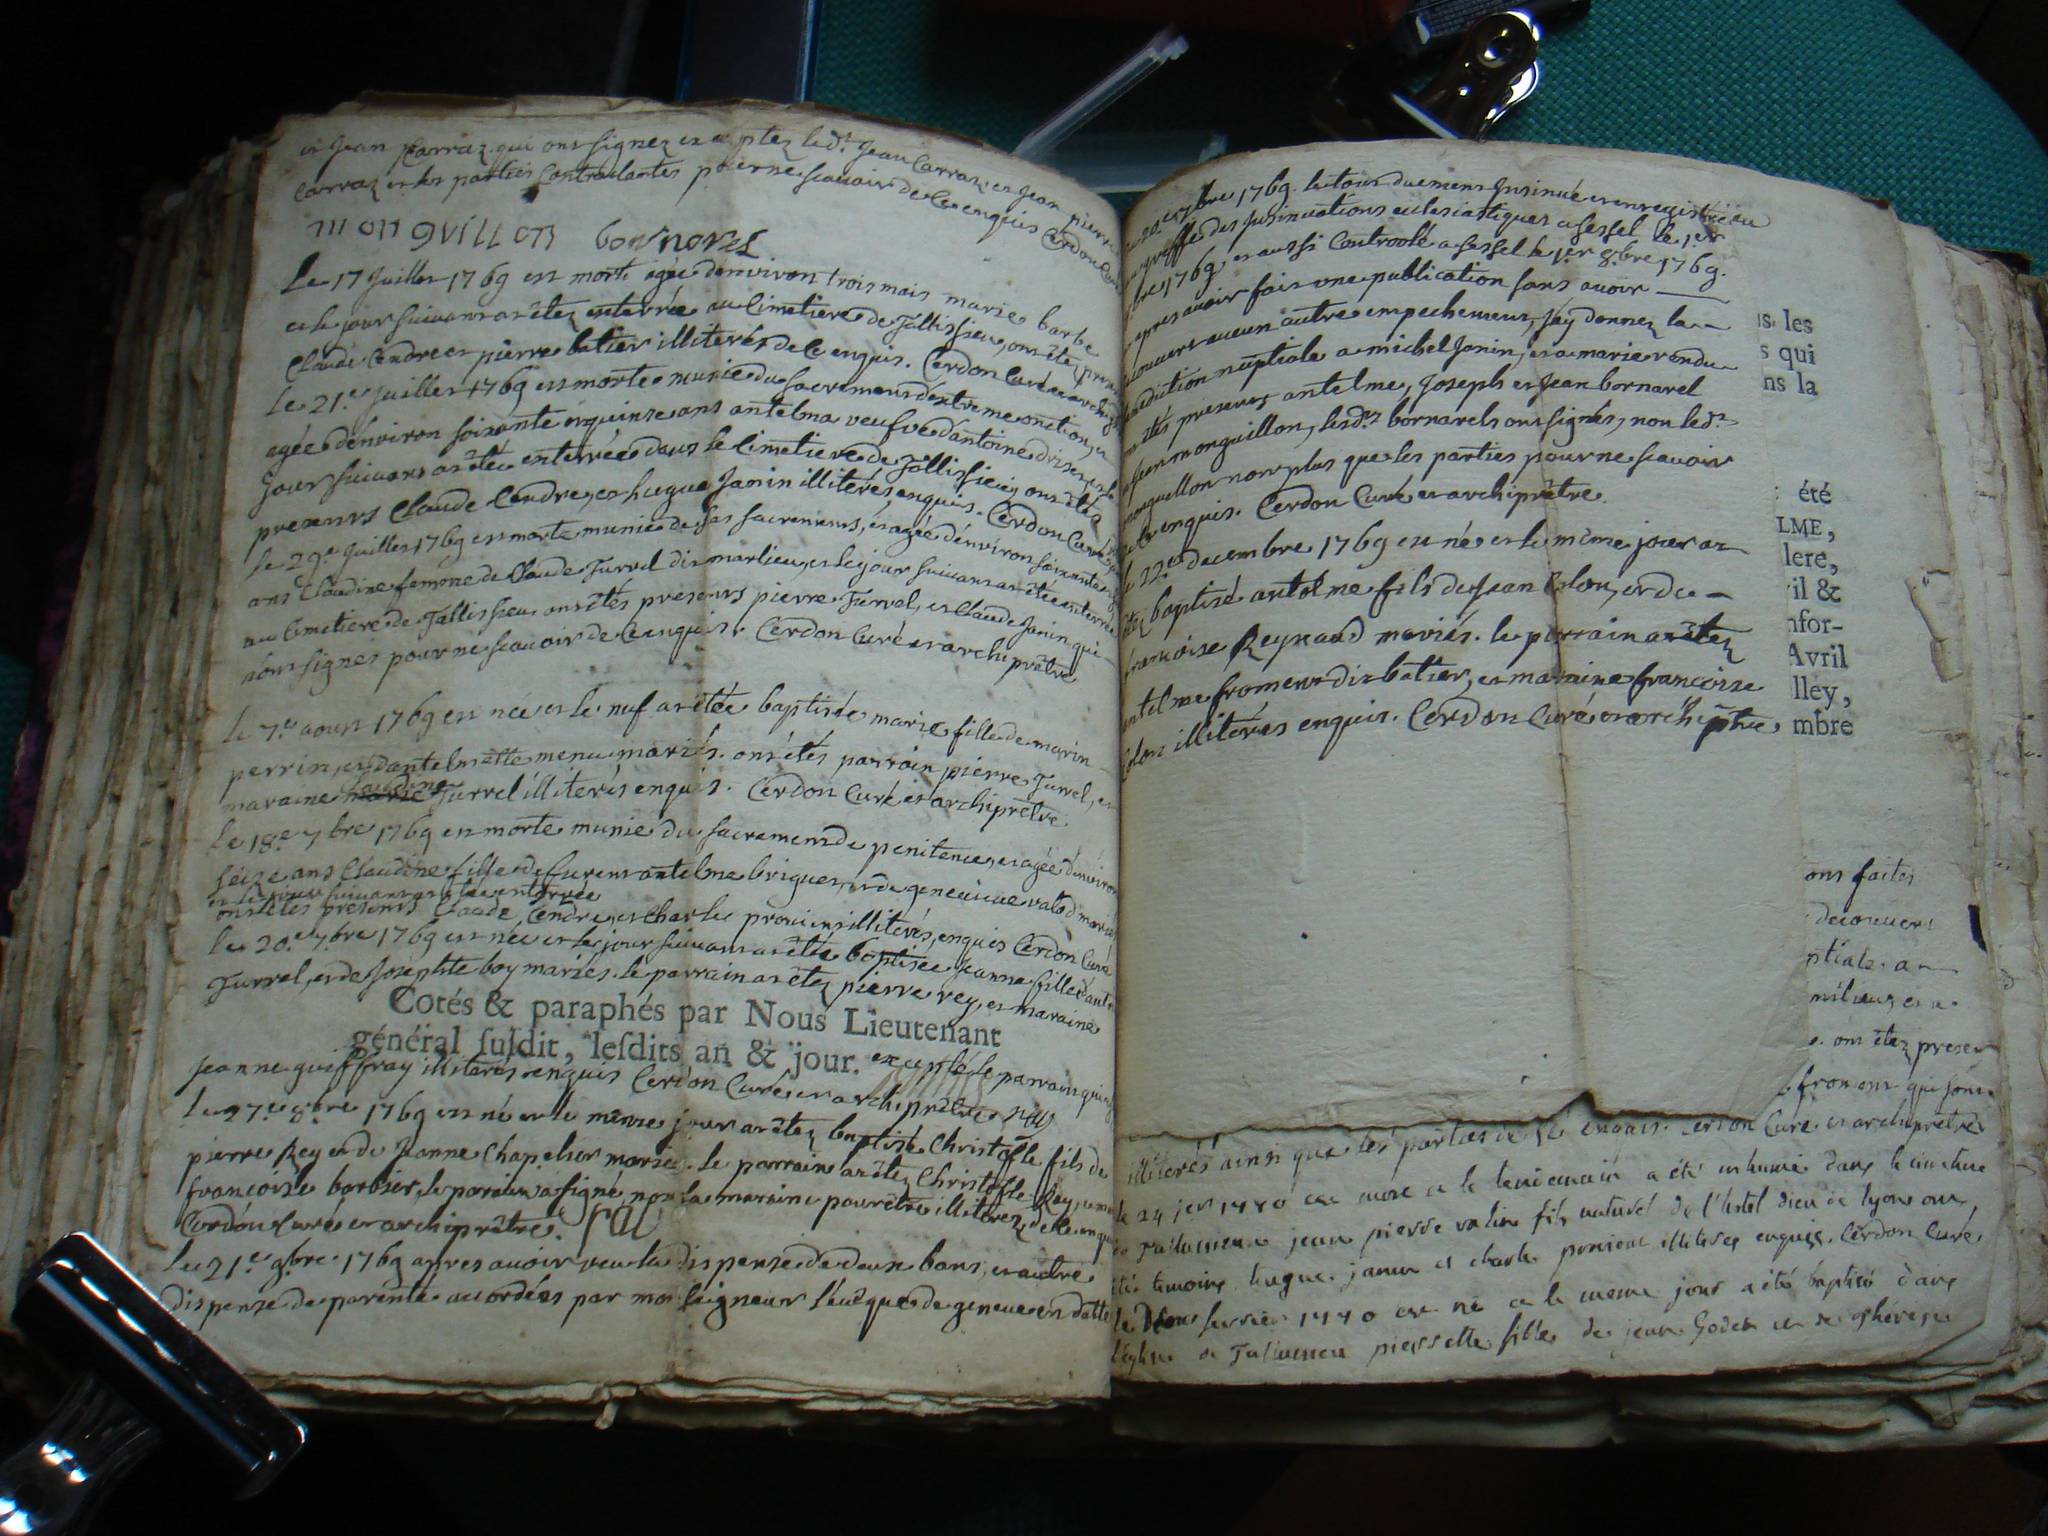 et Jean Carraz qui ont signez exceptez led.t Jean Carraz et Jean pierre
Carraz et les parties Contractantes pour ne scavoir de Ce enquis Cerdon Curé
monguillon bornarel
Le 17 Juillet 1769 est morte agée d'environ trois mois marie barbe
et le jour suivant a étéz enterrée au Cimetiere de Tallissieu, ont étéz presents
Claude Cendre et pierre batier illiterés de Ce enquis. Cerdon Curé et archiprêtre
Le 21.e Juillet 1769 est morte munie du sacrement d'extreme onction, et
agée d'environ soixante et quinze ans antelma veufve d'antoine et le
jour suivant a étée enterrée dans le Cimetiere de Tallissieu, ont étés
presents Claude Cendre, et hugue Janin illiterés enquis. Cerdon Curé
le 29.e Juillet 1769 est morte munie de ses sacrements, et agée d'environ soixante
ans Claudine femme de Claude Turrel dit marlieu, et le jour suivant a étée enterrée
au Cimetiere de Tallissieu ont étés presents pierre Turrel, et Claude Janin qui
n'ont signes pour ne scavoir de Ce enquis. Cerdon Curé et archiprêtre
le 7.e aout 1769 est née et le neuf a étée baptisée marie fille de marin
perrin, et d'antelmette menu mariés. ont étés parrain pierre Turrel, et
maraine Claudine Turrel illiterés enquis. Cerdon Curé et archiprêtre
le 18.e 7bre 1769 est morte munie du sacrement de penitence, et agée d'environ
seize ans Claudine fille de furent antelme et de genevieve mariés
et le jour suivant a étée enterrée
ont étés presents Claude Cendre, et Charles proviens illiterés, enquis Cerdon Curé
le 20.e 7bre 1769 est née et le jour suivant a étée baptisée Jeanne fille d'ant.
Turrel, et de Josephte boy mariés. le parrain a étéz pierre rey, et maraine
Cotés & paraphés par Nous Lieutenant
général susdit, lesdits an & jour.
excepté le parrain qui
Jeanne guiffray illiterés enquis Cerdon Curé et archiprêtre
le 27.e 8bre 1769 est né et le même jour a étéz baptisé Christofle fils de
pierre Rey et de Jeanne Chapelier mariés. le parrain a étéz Christofle Rey, et
françoise barbier, le parrain a signé non la maraine pour être illiterez de Ce enquis
Cerdon Curé et archiprêtre.
le 21.e 9bre 1769 apres avoir veu la dispense de deux bans, et autre
dispense de parenté accordées par monseigneur l'évêque de geneve en datte
20.e 7bre 1769. le tout duement Insinué et enregistré au
greffe des Insinuations eclesiastiques a sessel le 1er
8bre 1769, et aussi Controolé a sessel le 1er 8bre 1769.
apres avoir fait une publication sans avoir
decouvert aucun autre empechement, j'ay donnez la
benediction nuptiale a michel Janin, et a marie rendu
ont étés presents antelme, Joseph et Jean bornarel
et Jean monguillon, lesd.ts bornarels ont signés, non led.t
monguillon non plus que les parties pour ne scavoir
de Ce enquis. Cerdon Curé et archiprêtre.
le 22.e decembre 1769 est né et le même jour a
étéz baptisé antelme fils de Jean Colon, et de
françoise Reynaud mariés. le parrain a étéz
antelme froment dit batier, et maraine françoise
Colon illiterés enquis. Cerdon Curé et archiprêtre
s les
s qui
ns la
été
LME,
lere,
il &
nfor-
Avril
lley,
mbre
ons faites
decouvert
ptiale a
milieu, et a
ont étéz presen
froment qui
illiterés ainsi que les parties de Ce enquis. Cerdon Curé et archiprêtre
le 24 jer 1770 est mort et le lendemain a été inhumé dans le cimetiere
de Tallissieu jean pierre valin fils naturel de l'hotel dieu de lyon ont
été temoins hugue janin et charle illiterés enquis. Cerdon Curé
le fevrier 1770 est né et le meme jour a été baptisé dans
l'église de Tallissieu pierrette fille de jean Godet et de